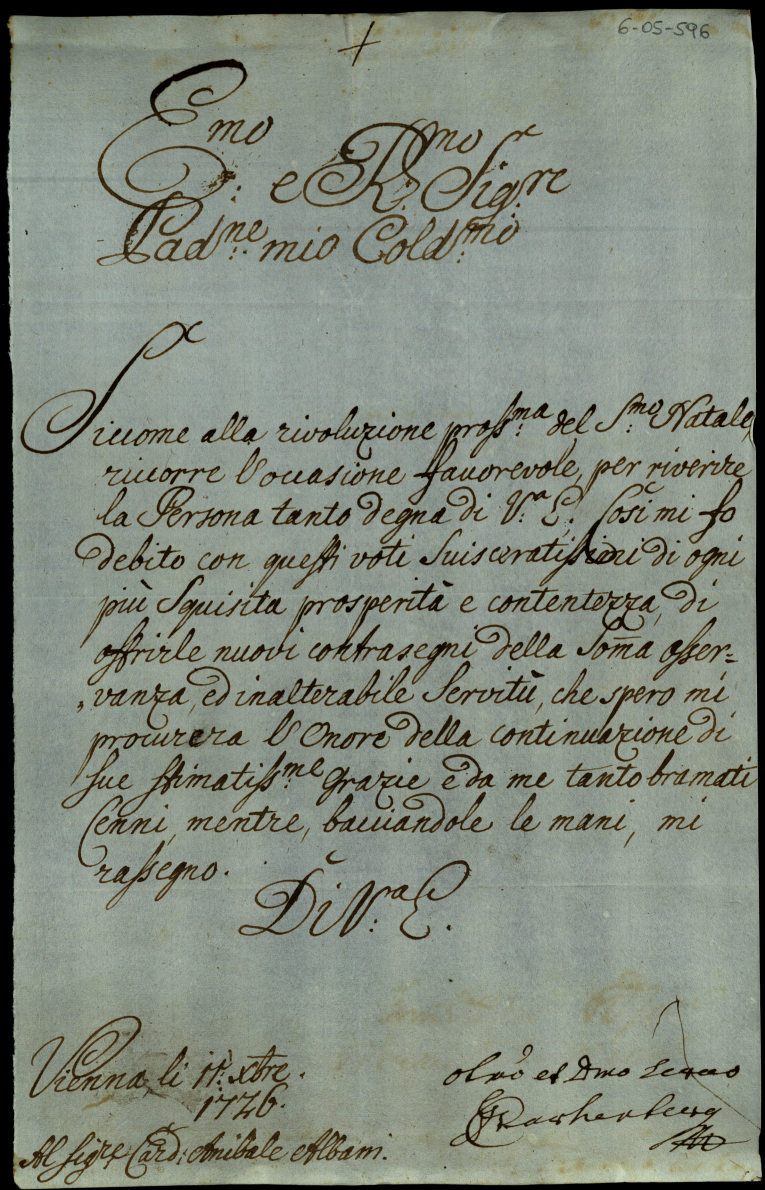 6-05-596
+
Emo: e Rmo: Sigre
Padne: mio Coldmo:
Siccome alla rivoluzione prossma: del Smo: Natale,
ricorre l'occasione favorevole, per riverire
la Persona tanto degna di V.a E. Così mi fo
debito con questi voti Suisceratissimi di ogni
più Squisita prosperità e contentezza, di
offrirle nuovi contrasegni della Som̃a osser=
„vanza, ed inalterabile Servitù, che spero mi
procurera l'Onore della continuazione di
sue stimatissme: grazie e da me tanto bramati
Cenni, mentre, bacciandole le mani, mi
rassegno.
Di V.a E.
Vienna, li 11: xbre.
1726.
Al Sigre Card: Anibale Albani.